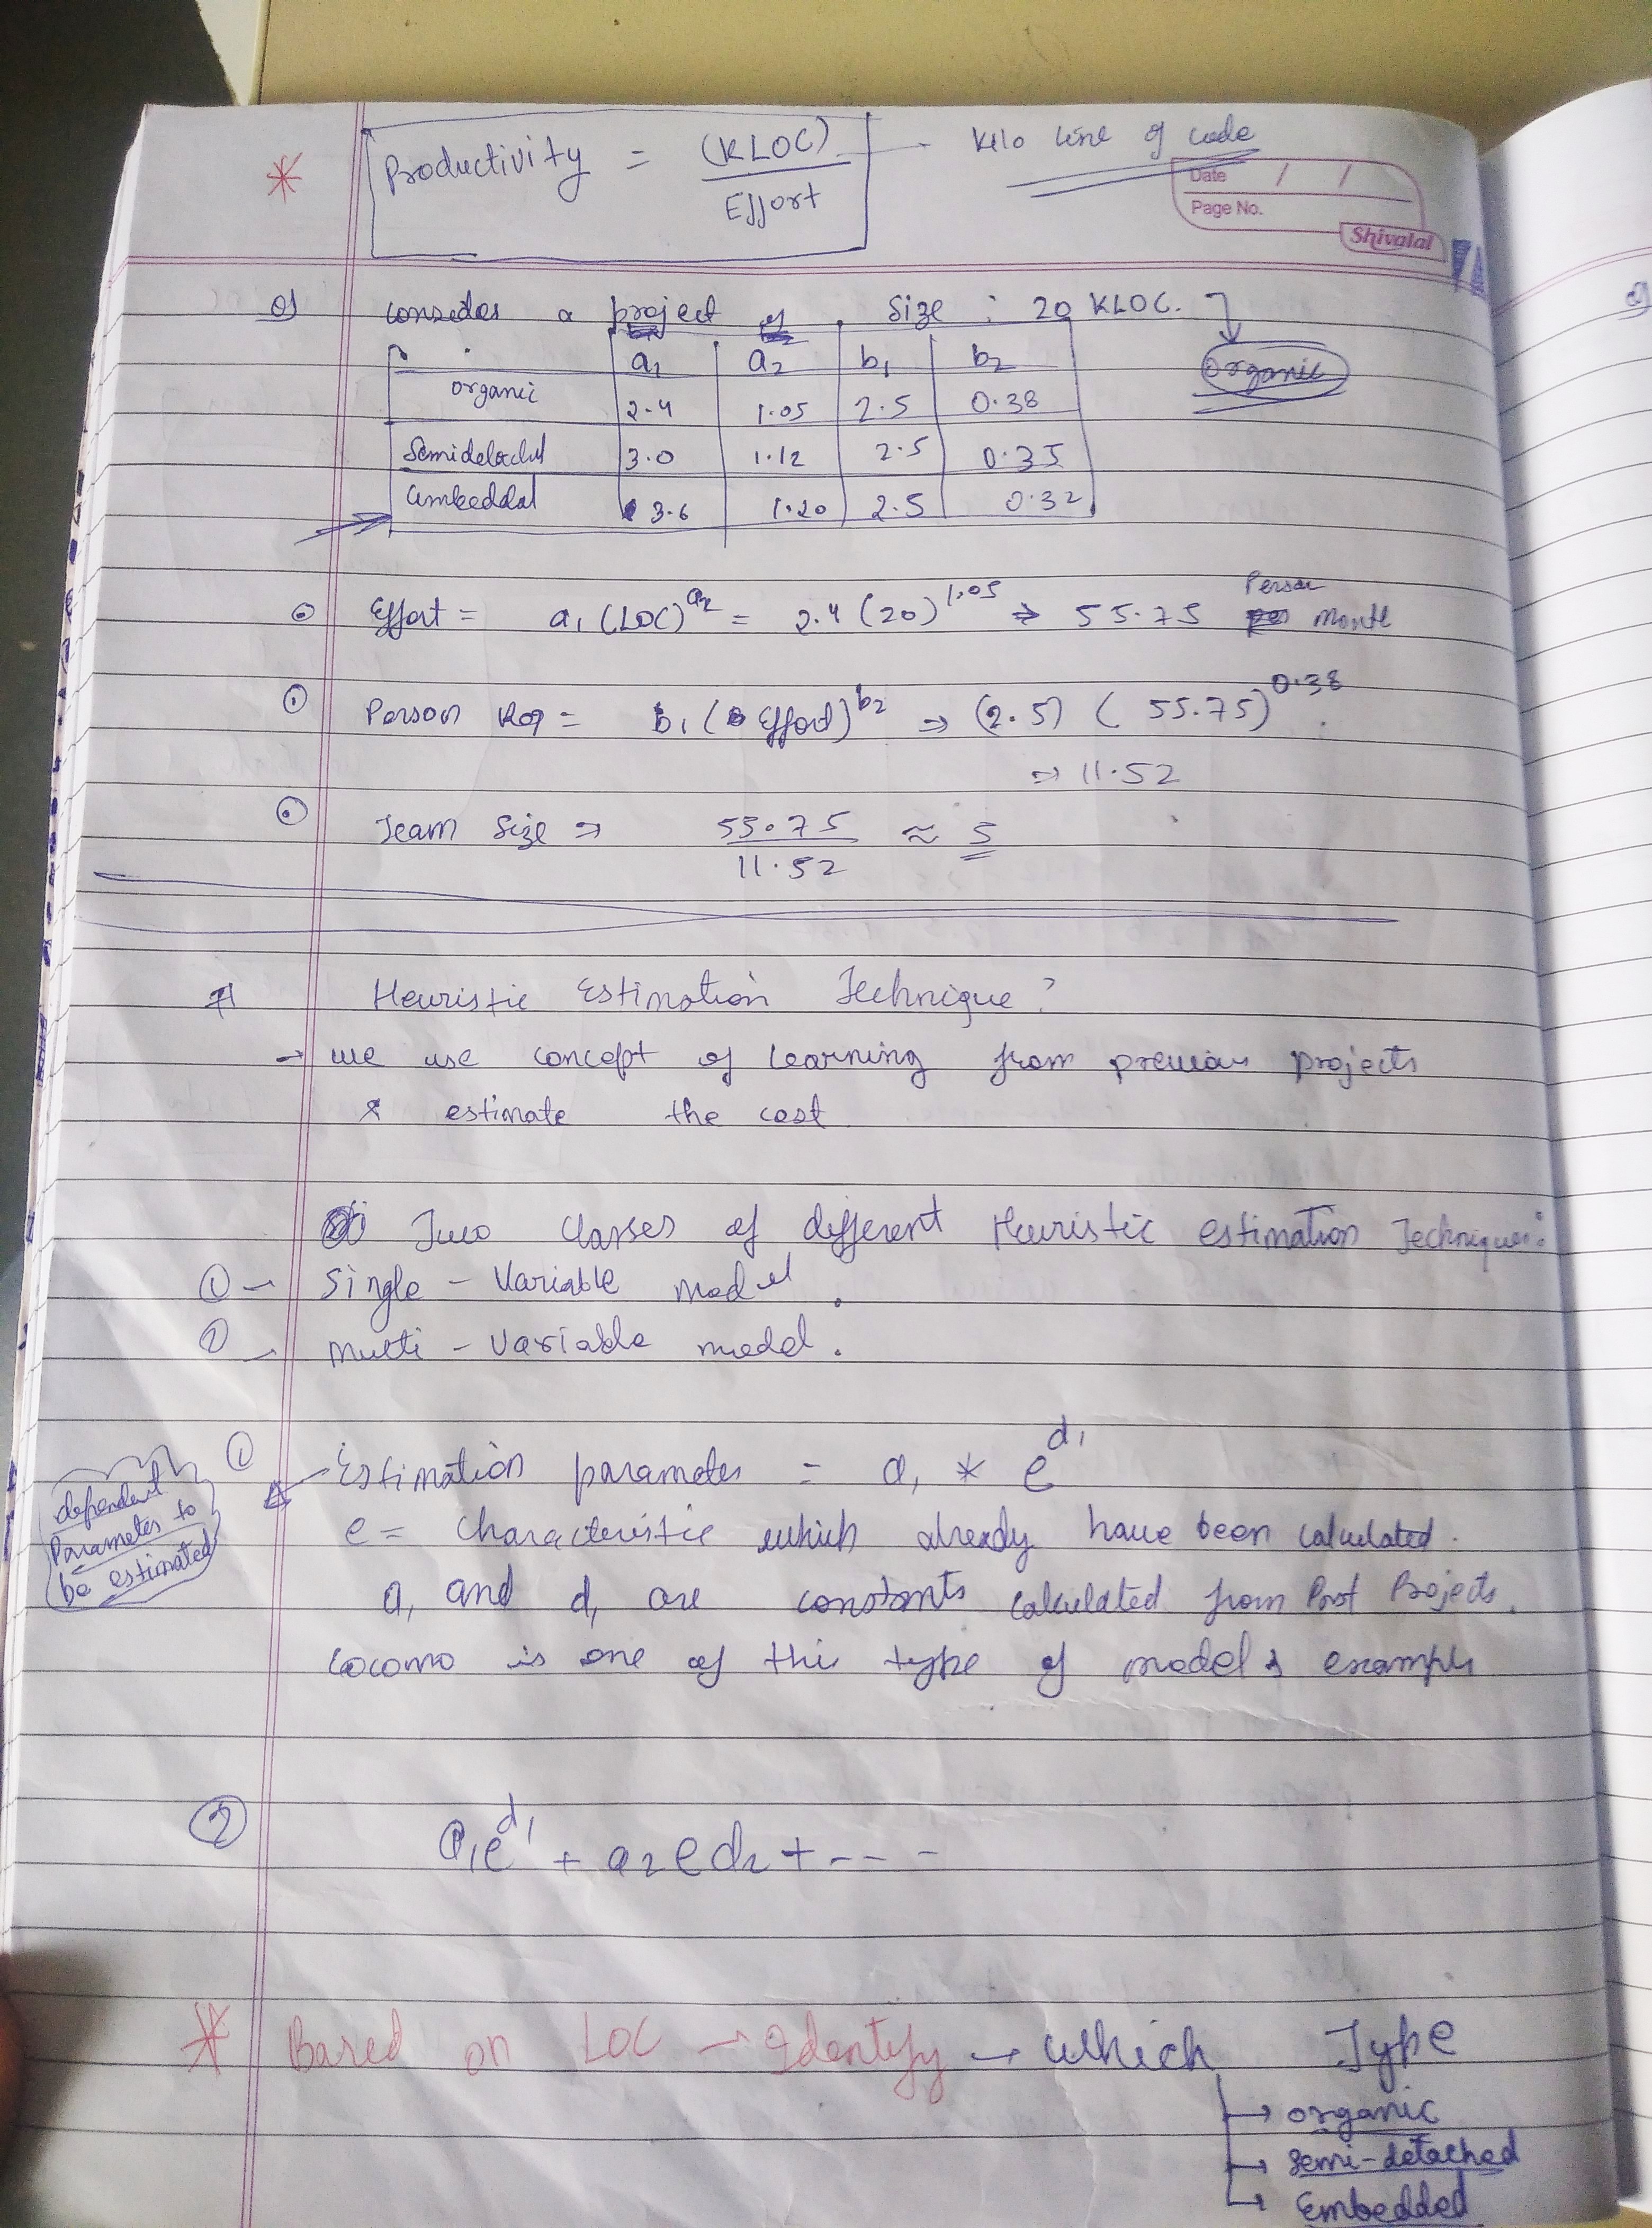 * Productivity = (KLOC) / Effort - Kilo line of code
Date / /
Page No.
Shivalal
Q) consider a project of Size : 20 KLOC. → Organic
a1 a2 b1 b2
organic 2.4 1.05 2.5 0.38
Semidetached 3.0 1.12 2.5 0.35
embedded 3.6 1.20 2.5 0.32
Effort = a1 (LOC)^a2 = 2.4 (20)^1.05 ⇒ 55.75 Person Month
Person Req = b1 (Effort)^b2 ⇒ (2.5) (55.75)^0.38
⇒ 11.52
Team Size ⇒ 55.75 / 11.52 ≈ 5
# Heuristic Estimation Technique?
→ we use concept of learning from previous projects
& estimate the cost
Two Classes of different Heuristic estimation Techniques:
① - Single - Variable model.
② - Multi - Variable model.
① Estimation parameter = a1 * e^d1
dependent
Parameter to
be estimated
e = characteristic which already have been calculated.
a1 and d1 are constants calculated from Past Projects.
cocomo is one of this type of model example
② a1e^d1 + a2ed2 + - - -
* Based on LOC → Identify → which Type
→ organic
→ Semi-detached
→ Embedded